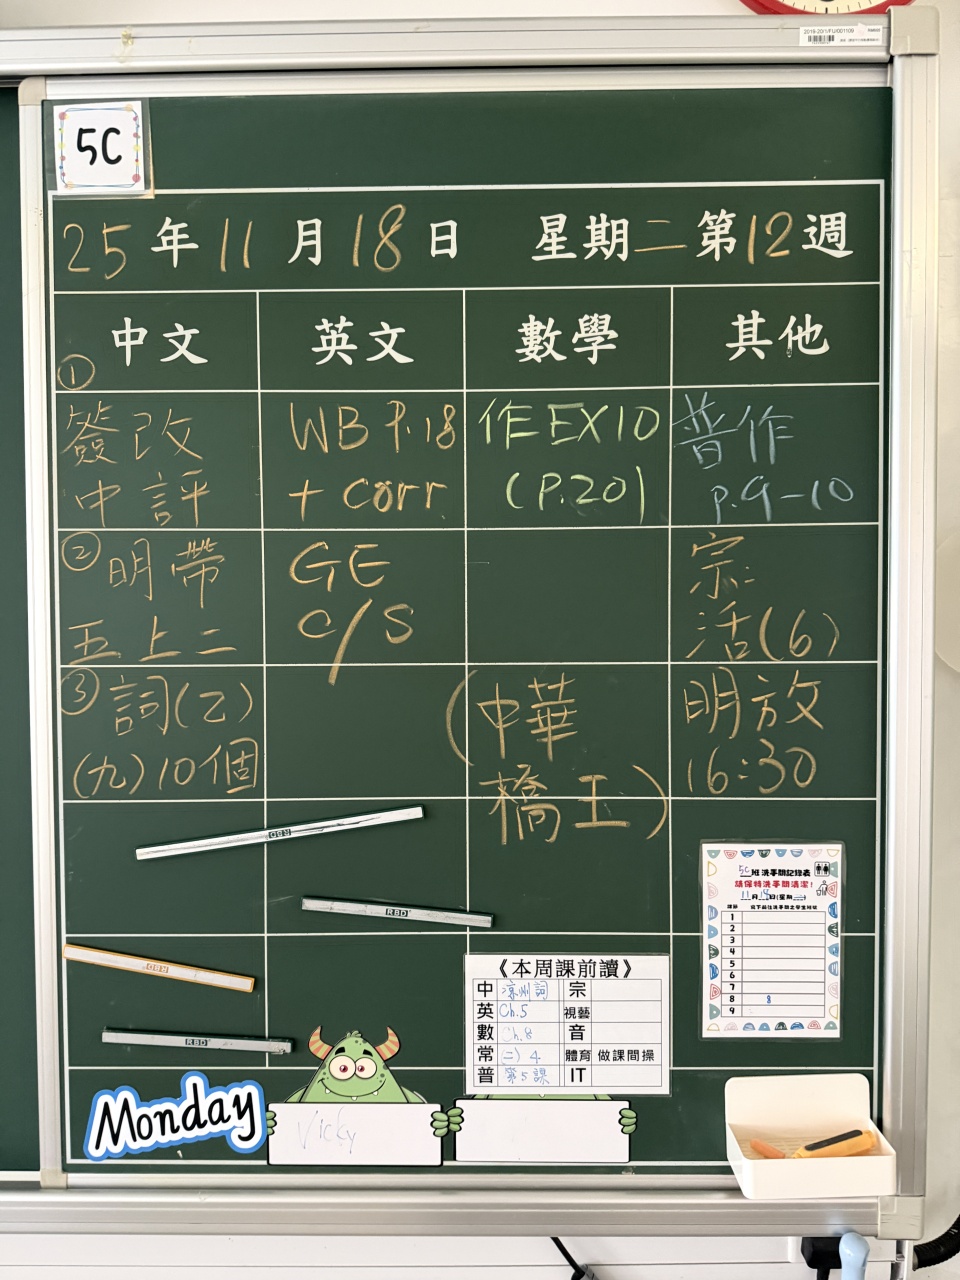 2019-20/1/FU/001109
5C
25年11月18日 星期二第12週
中文 英文 數學 其他
①
簽改
中評
WB P.18
+ corr.
作EX10
(P.20)
普作
p.9-10
②明帶
五上二
GE
C/S
宗:
活(6)
③詞(乙)
(九)10個
(中華
橋王)
明放
16:30
RBD
RBD
RBD
RBD
5C班洗手間記錄表
請保持洗手間清潔!
11月18日(星期二)
1
2
3
4
5
6
7
8 8
9
《本周課前讀》
中 涼州詞 宗
英 Ch.5 視藝
數 Ch.8 音
常 二) 4 體育 做課間操
普 第5課 IT
Monday
Vicky